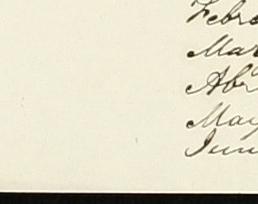 Febr
Mar
Apr
May
Jun